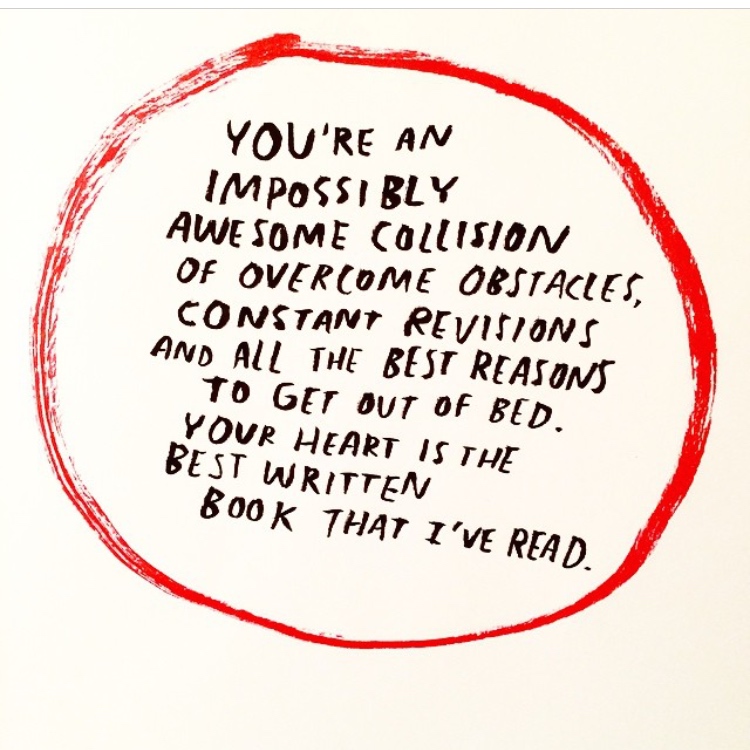 YOU'RE AN
IMPOSSIBLY
AWESOME COLLISION
OF OVERCOME OBSTACLES,
CONSTANT REVISIONS
AND ALL THE BEST REASONS
TO GET OUT OF BED.
YOUR HEART IS THE
BEST WRITTEN
BOOK THAT I'VE READ.